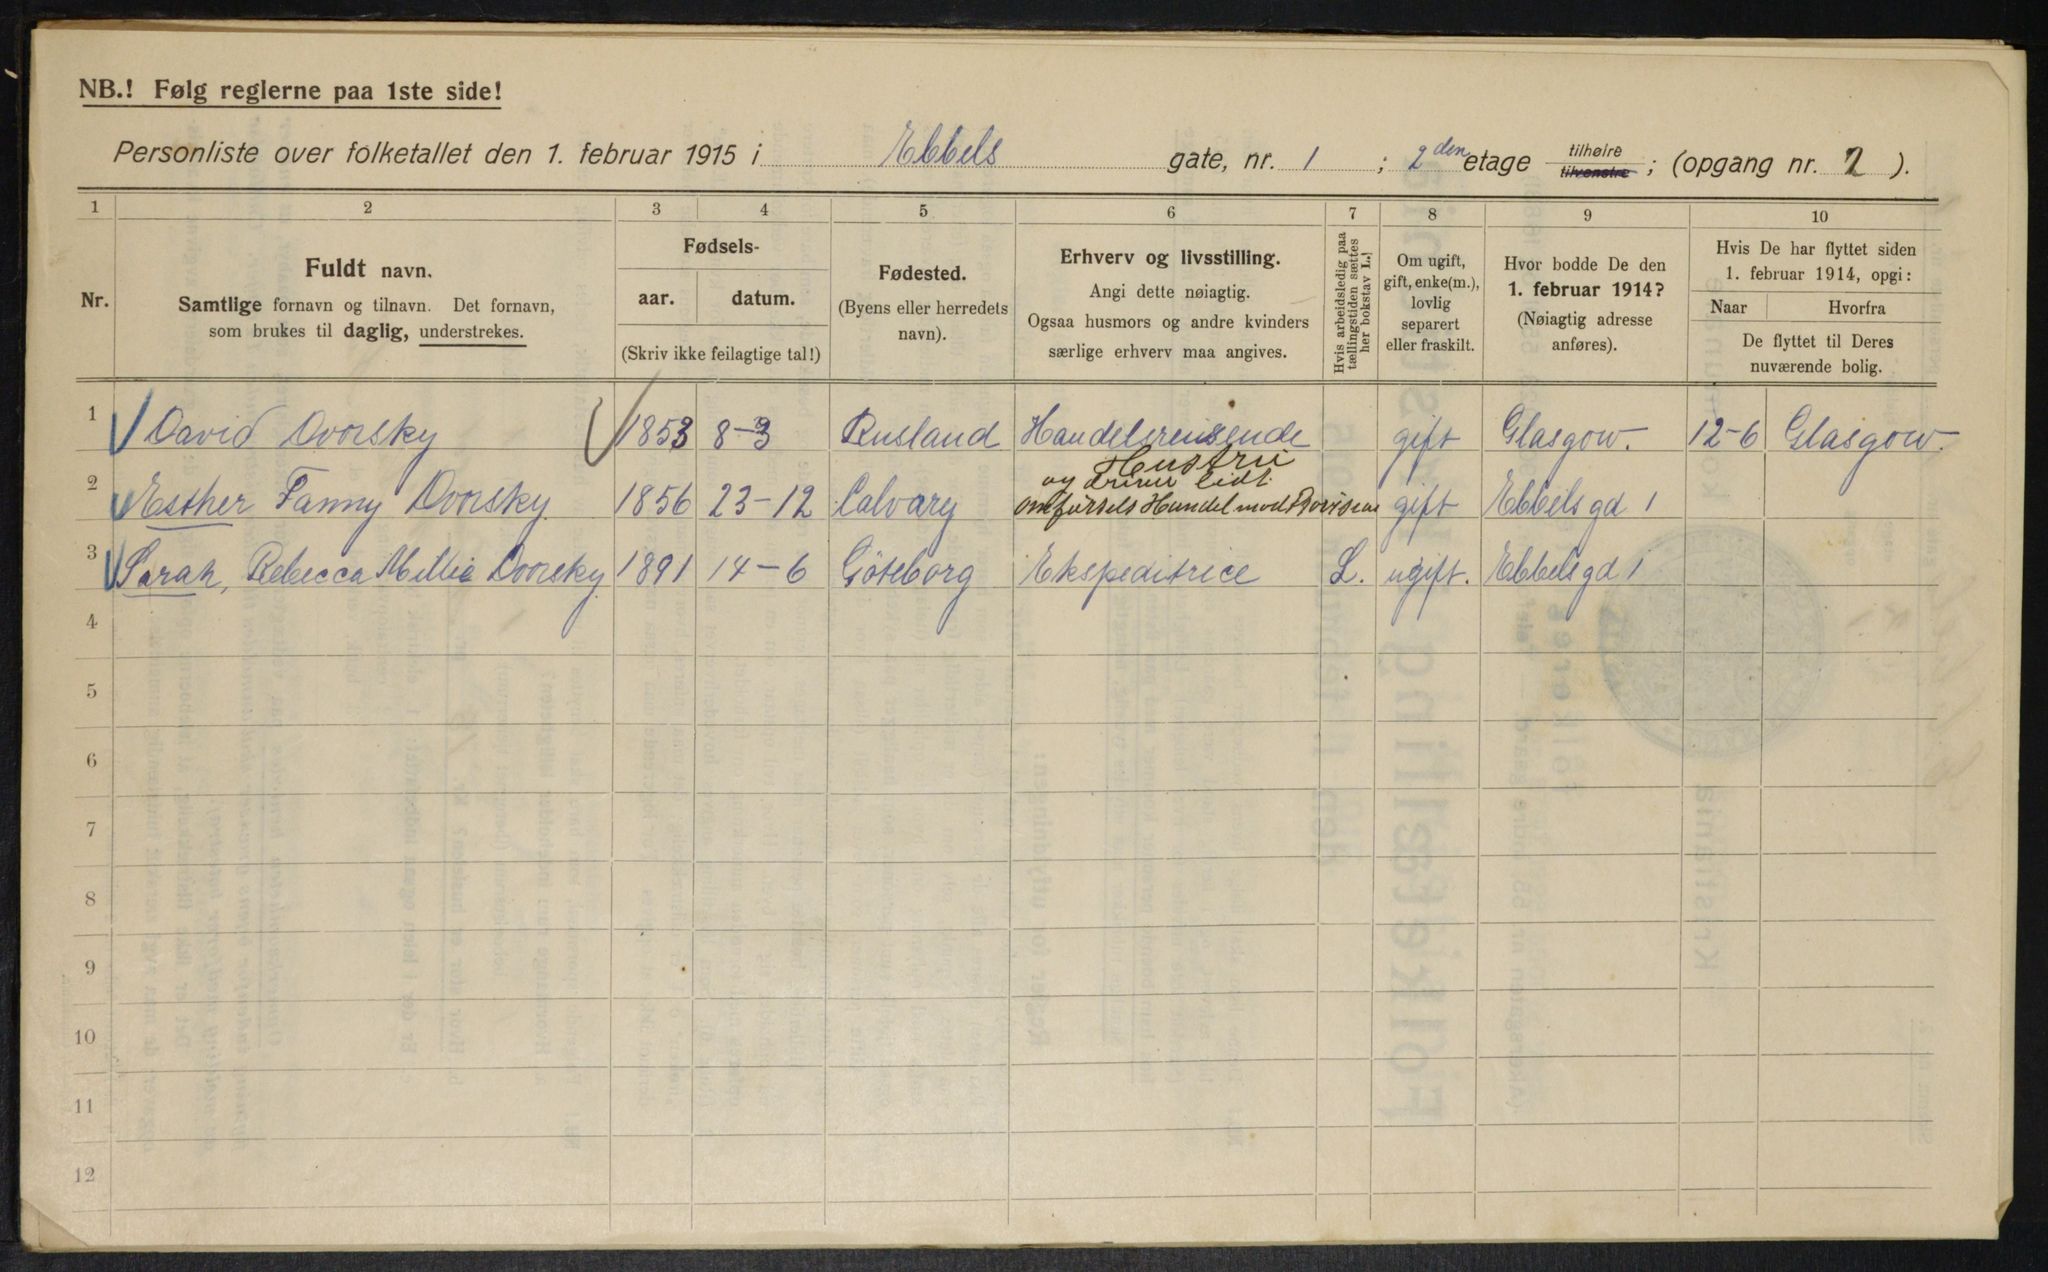 NB.! Følg reglerne paa 1ste side!
Personliste over folketallet den 1. februar 1915 i Ebbels gate, nr. 1 ; 2den etage tilhøire tilvenstre ; (opgang nr. 2 ).
1 2 3 4 5 6 7 8 9 10
Nr.
Fuldt navn.
Samtlige fornavn og tilnavn. Det fornavn,
som brukes til daglig, understrekes.
Fødsels-
aar. datum.
(Skriv ikke feilagtige tal!)
Fødested.
(Byens eller herredets
navn).
Erhverv og livsstilling.
Angi dette nøiagtig.
Ogsaa husmors og andre kvinders
særlige erhverv maa angives.
Hvis arbeidsledig paa
tællingstiden sættes
her bokstav L.)
Om ugift,
gift, enke(m.),
lovlig
separert
eller fraskilt.
Hvor bodde De den
1. februar 1914?
(Nøiagtig adresse
anføres).
Hvis De har flyttet siden
1. februar 1914, opgi:
Naar Hvorfra
De flyttet til Deres
nuværende bolig.
1 David Dvorsky 1853 8-3 Rusland Handelsreisende gift Glasgow. 12-6 Glasgow.
2 Esther Fanny Dvorsky 1856 23-12 Calvary Hustru
og driver lidt
omførsels Handel mod gift Ebbels gd 1
3 Sarah, Rebecca Millie Dvorsky 1891 14-6 Göteborg Ekspeditrice L. ugift. Ebbels gd 1
4
5
6
7
8
9
10
11
12